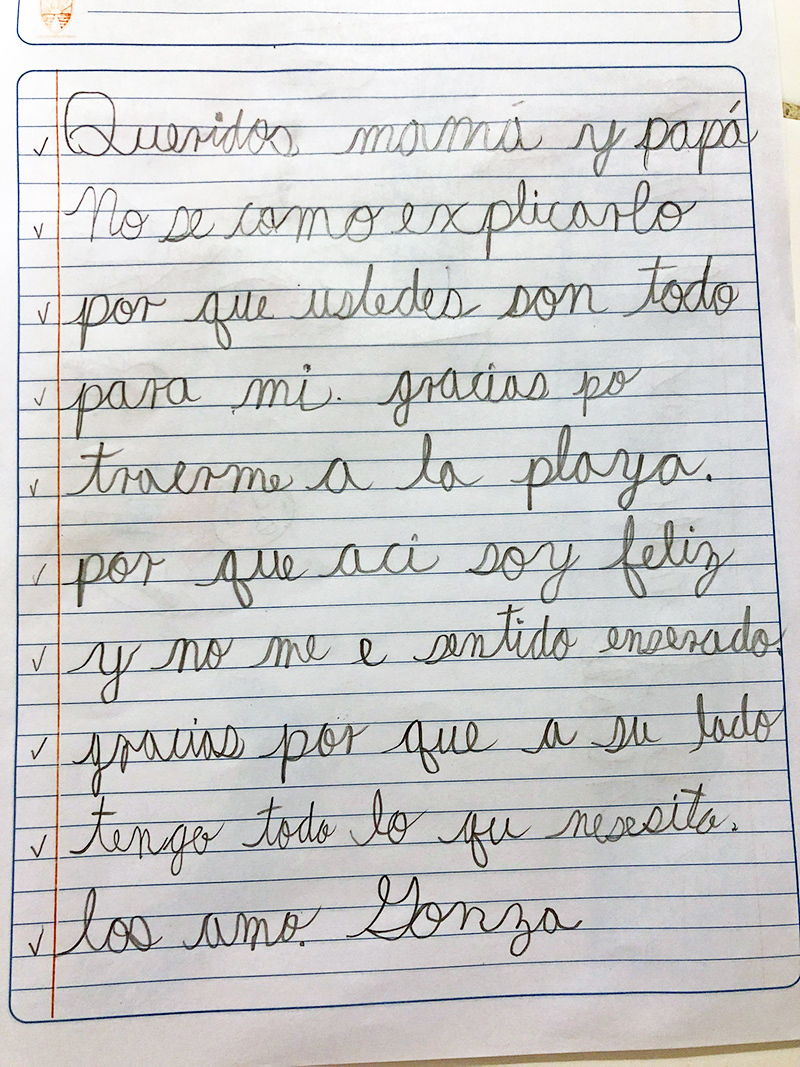 Queridos mamá y papá
No se como explicarlo
por que ustedes son todo
para mi. gracias po
traerme a la playa.
por que aci soy feliz
y no me e sentido enserado.
gracias por que a su lado
tengo todo lo qu nesesito.
los amo. Gonza